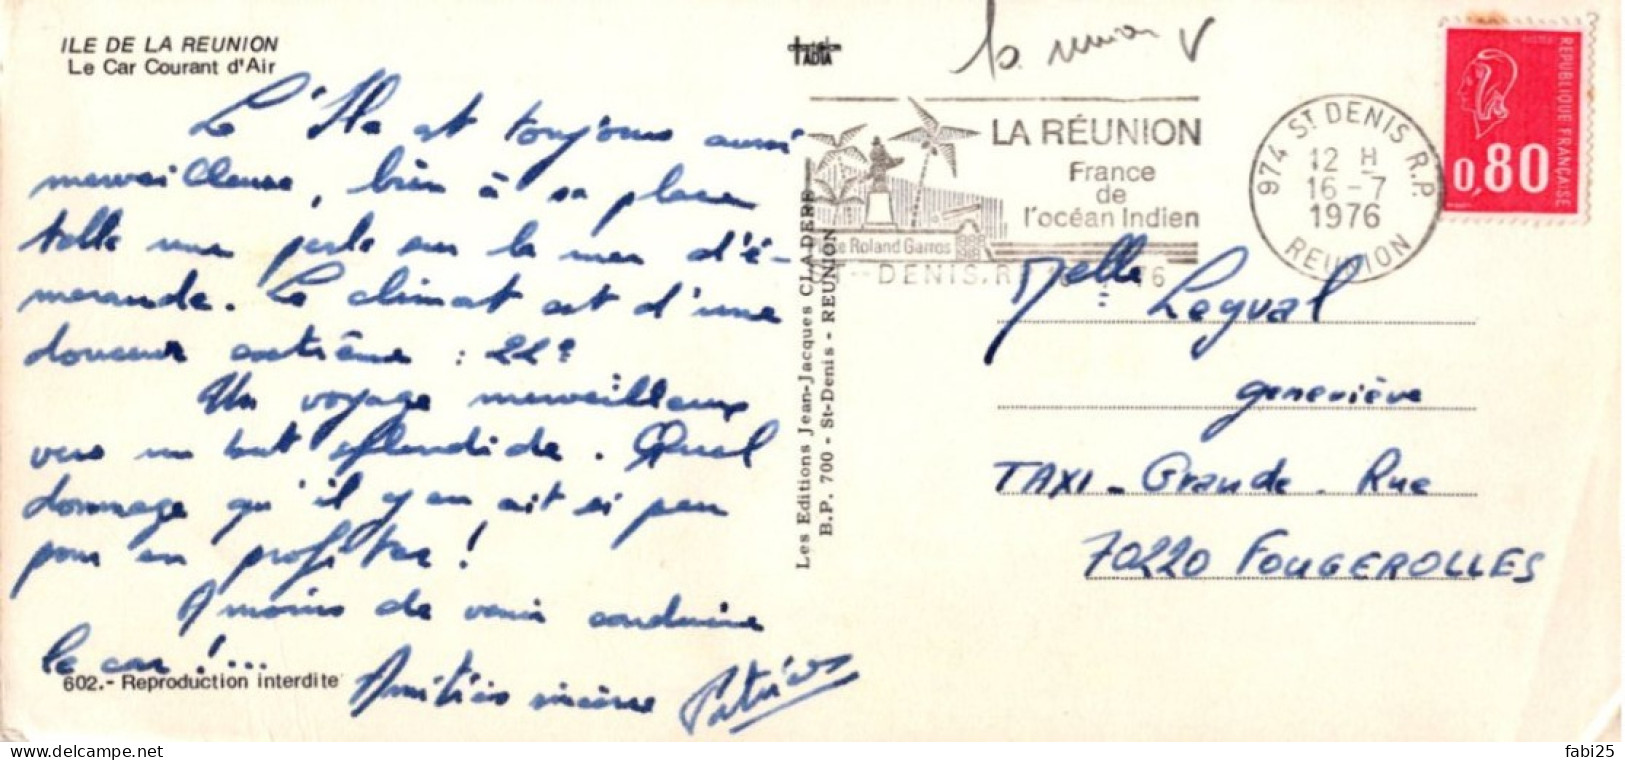 ILE DE LA REUNION
Le Car Courant d'Air
L'Ile est toujours aussi
merveilleuse, bien à sa place
telle une perle sur la mer d'é-
meraude. Le climat est d'une
douceur extrême : 22°
Un voyage merveilleux
vers un but splendide. Quel
dommage qu'il y en ait si peu
pour en profiter !
A moins de venir conduire
le car !...
602.- Reproduction interdite
Amitiés sincères Patrice
TADIA
Les Editions Jean-Jacques CLADERE
B.P. 700 - St-Denis - REUNION
la reunion V
LA RÉUNION
France
de
l'océan Indien
Roland Garros
ST-DENIS.R
974 ST DENIS R.P.
12 H
16-7
1976
REUNION
REPUBLIQUE FRANÇAISE
0,80
Melle Legval
geneviève
TAXI - Grande Rue
70220 FOUGEROLLES
fabi25